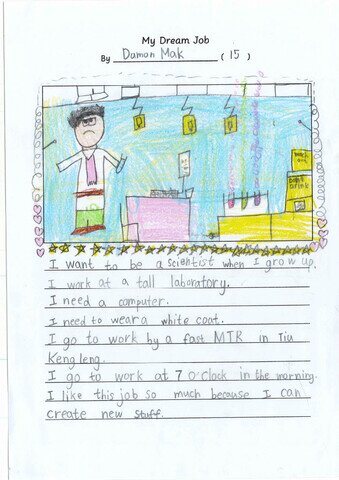 My Dream Job
By Damon Mak ( 15 )
I want to be a scientist when I grow up.
I work at a tall laboratory.
I need a computer.
I need to wear a white coat.
I go to work by a fast MTR in Tiu
Keng leng.
I go to work at 7 O'clock in the morning.
I like this job so much because I can
create new stuff.